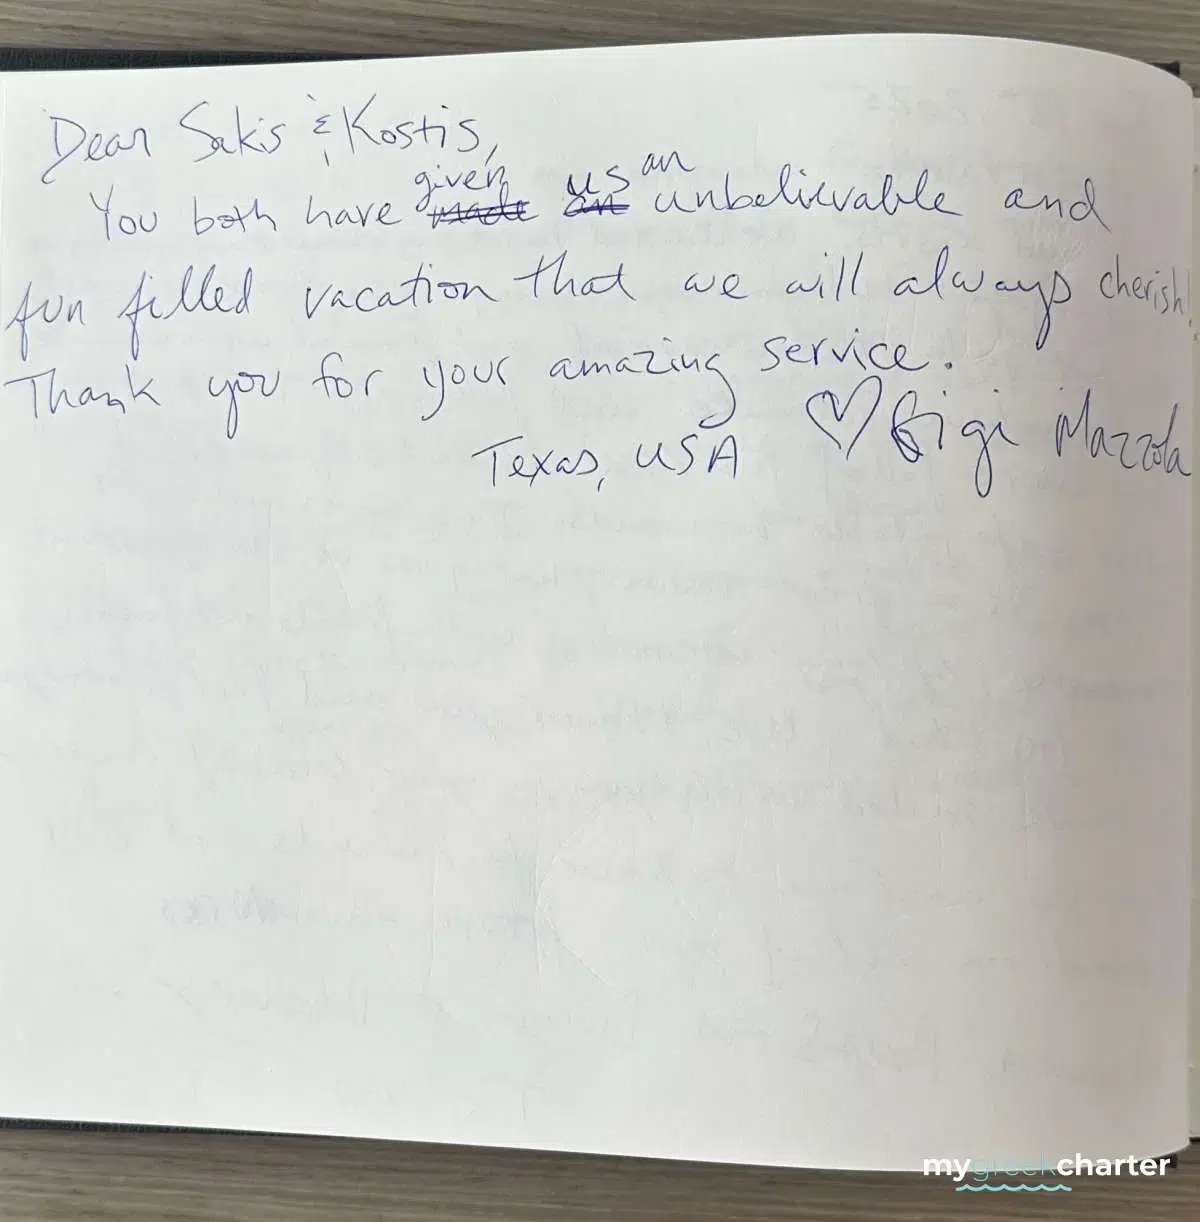 Dear Sakis & Kostis,
You both have given us an unbelievable and
fun filled vacation that we will always cherish!
Thank you for your amazing service.
♡ Gigi Mazzola
Texas, USA
mygreekcharter